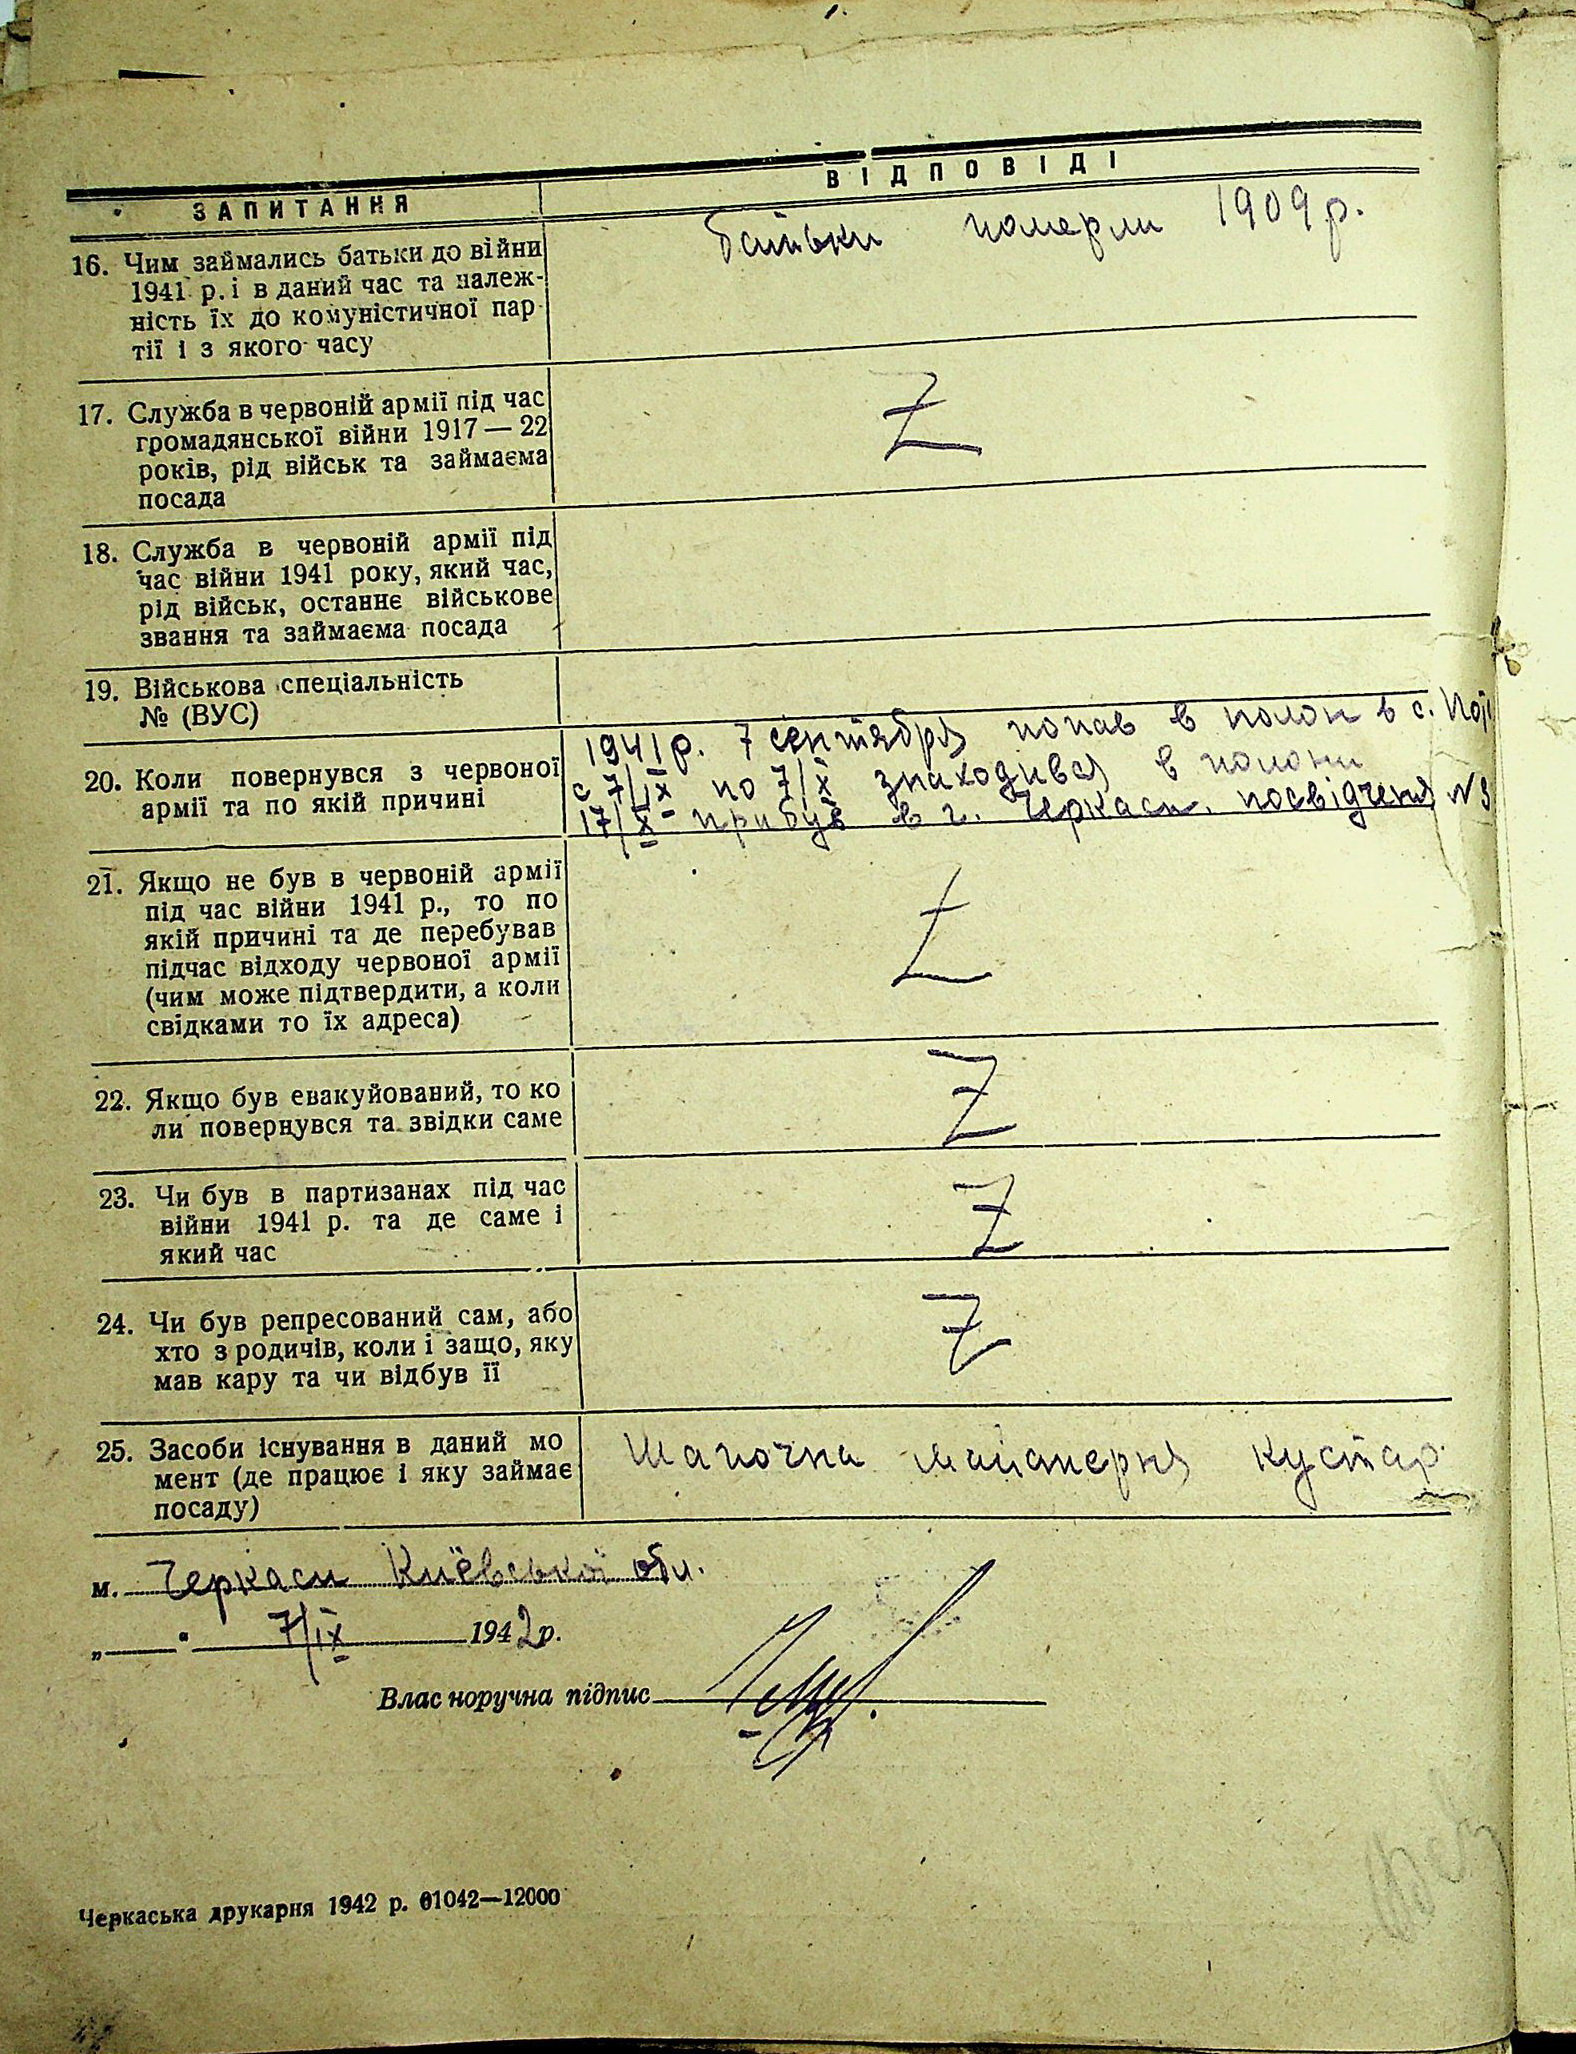 ЗАПИТАННЯ ВІДПОВІДІ
16. Чим займались батьки до війни
1941 р. і в даний час та належ-
ність їх до комуністичної пар-
тії і з якого часу
батьки померли 1909 р.
17. Служба в червоній армії під час
громадянської війни 1917 — 22
років, рід військ та займаєма
посада
Z
18. Служба в червоній армії під
час війни 1941 року, який час,
рід військ, останнє військове
звання та займаєма посада
19. Військова спеціальність
№ (ВУС)
20. Коли повернувся з червоної
армії та по якій причині
1941 р. 7 сентября попав в полон в с.
с 7/IX по 7/X знаходився в полоні
17/X прибув в г. Черкаси. посвідченя №
21. Якщо не був в червоній армії
під час війни 1941 р., то по
якій причині та де перебував
підчас відходу червоної армії
(чим може підтвердити, а коли
свідками то їх адреса)
Z
22. Якщо був евакуйований, то ко
ли повернувся та звідки саме
Z
23. Чи був в партизанах під час
війни 1941 р. та де саме і
який час
Z
24. Чи був репресований сам, або
хто з родичів, коли і защо, яку
мав кару та чи відбув її
Z
25. Засоби існування в даний мо
мент (де працює і яку займає
посаду)
Шапочна майстерня кустар
м. Черкаси Київської обл.
„ “ 7/IX 1942 р.
Власноручна підпис
Черкаська друкарня 1942 р. 01042—12000